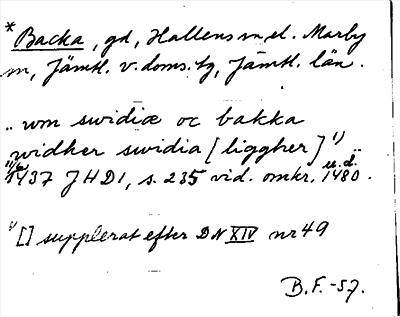 * Backa, gd, Hallens sn, el. Marby
sn, Jämtl. v. doms. tg, Jämtl. län.
„ um swidiæ oc bakka
widher swidia [liggher]¹)
11/6 1437 JHD1, s. 235 vid. omkr. 1480. u.d.
¹) [] supplerat efter DN XIV nr 49
B.F. -57.